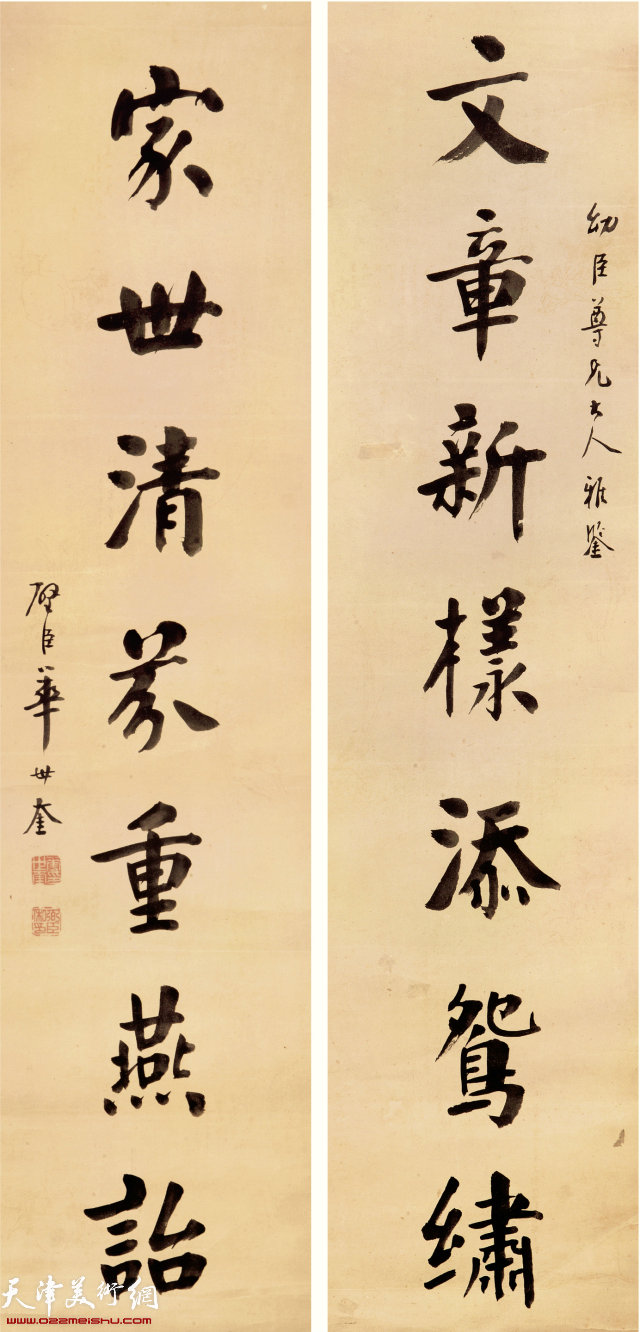 幼臣尊兄大人雅鑒
文章新樣添鴛繡
家世清芬重燕詒
壁臣華世奎
天津美術網
www.022meishu.com